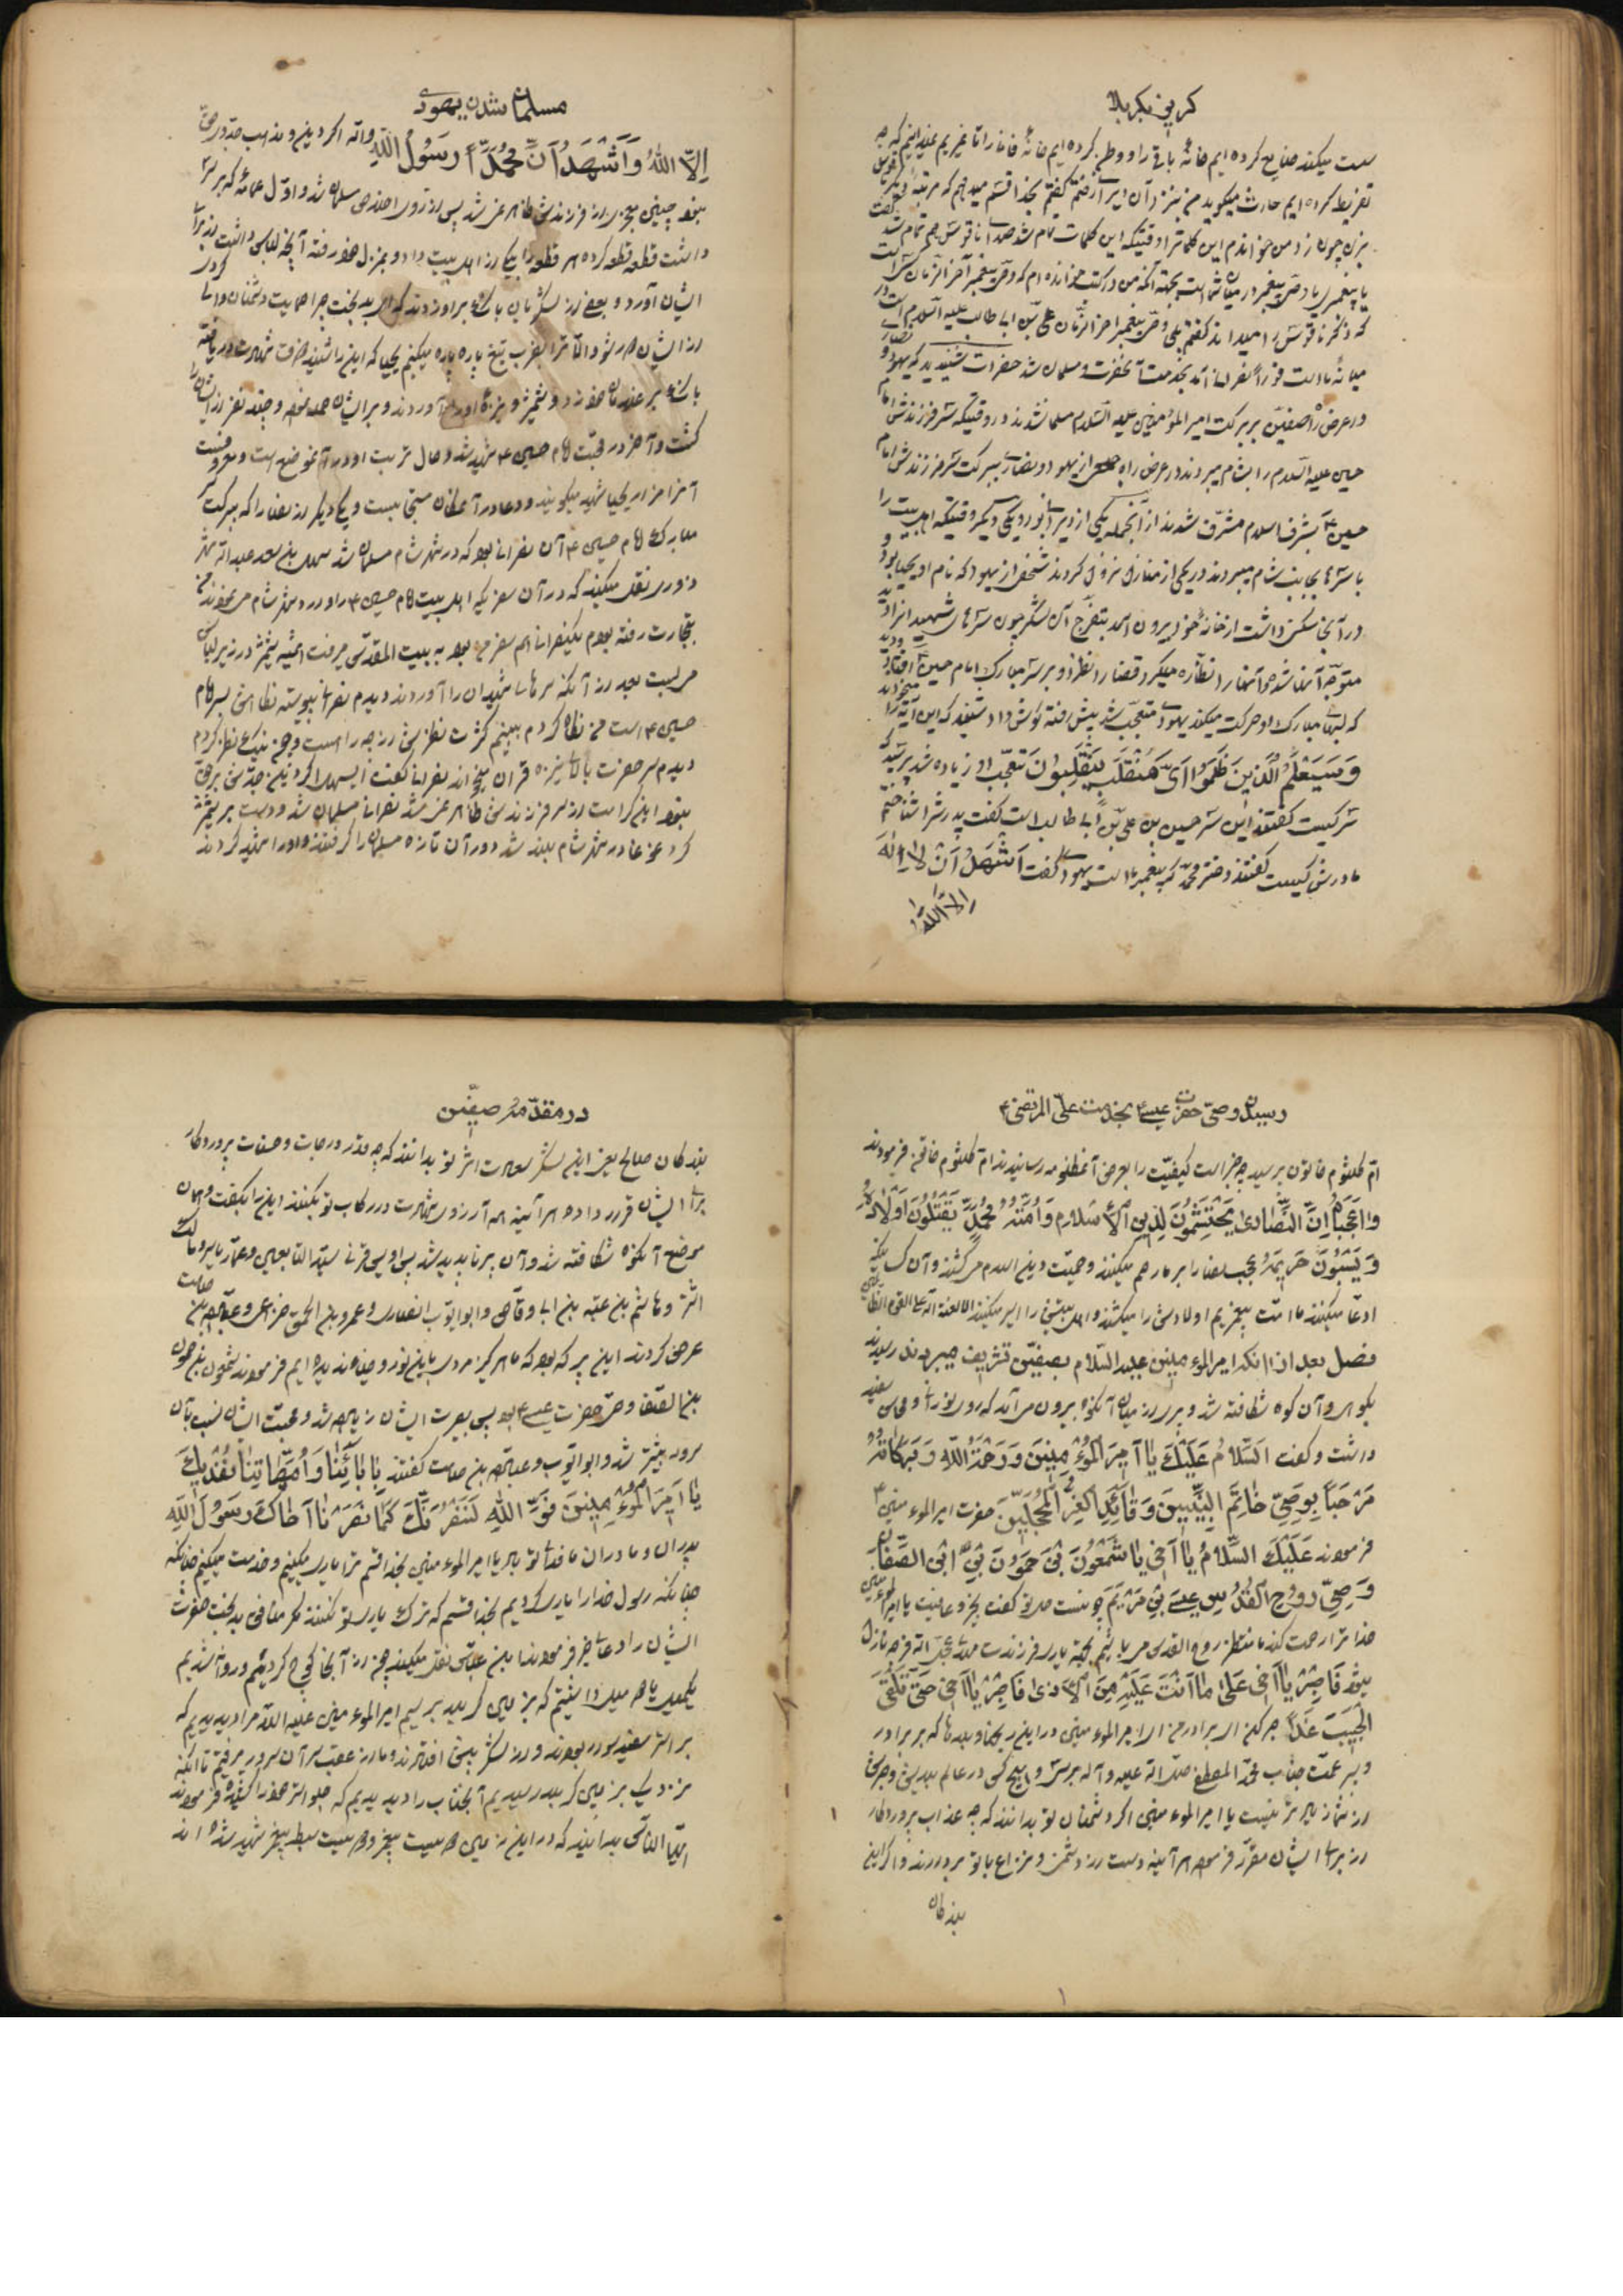 کریز بکربلا
ست میکند ضایع کرده ایم خانهٔ باقی را و وطن کرده ایم خانهٔ فانی را تا
تفریط کرده ایم حارث میگوید من بنزد آن دیرانی رفتم گفتم بخدا قسم میدهم که مرتبهٔ دیگر ناقوس
بزن چون زد من خواندم این کلماترا وقتیکه این کلمات تمام شد صدای ناقوس هم تمام شد گفت
یا پیغمبر یا وصی پیغمبر در میان شما است بجهة آنکه من در کتب خوانده ام که وصی پیغمبر آخر الزمان
که ذکر ناقوس را میداند گفتم بلی وصی پیغمبر اخر الزمان علی بن ابی طالب علیه السلام است در
میانهٔ ما است فوراً نصرانی آمد بخدمت آنحضرت و مسلمان شد حضرات شنیدید که یهود و نصاری
در عرض راه صفین ببرکت امیر المؤمنین علیه السلام مسلمان شدند و در وقتیکه سر فرزندش امام
حسین علیه السلام را بشام میبردند در عرض راه جمعی از یهود و نصاری ببرکت سر فرزندش امام
حسین ع بشرف اسلام مشرف شدند از آنجمله یکی از دیرانی بود و یکی دیگر وقتیکه اهلبیت را
با سرها بجانب شام میبردند در یکی از منازل نزول کردند شخصی از یهود که نام او یحیی بود و
در آنجا مسکن داشت از خانهٔ خود بیرون امد بتفرج آن لشکر چون سرهای شهیدانرا دید
متوجه آنها شد و آنها را نظاره میکرد قضا را نظر او بر سر مبارک امام حسین ع افتاد دید
که لبهای مبارک او حرکت میکند یهودی متعجب شد پیش رفته گوش داد شنید که این آیه را میخواند
وَسَيَعْلَمُ الَّذِينَ ظَلَمُوا أَيَّ مُنْقَلَبٍ يَنْقَلِبُونَ تعجب او زیاده شد پرسید که
سر کیست گفتند این سر حسین بن علی بن ابی طالب است گفت پدرشرا شناختم
مادرش کیست گفتند دختر محمد که پیغمبر ما است یهودی گفت اَشْهَدُ اَنْ لا اِلٰهَ
اِلَّا اللّٰهُ
مسلمان شدن یهودی
اِلَّا اللّٰهُ وَاَشْهَدُ اَنَّ مُحَمَّداً رَسُولُ اللّٰهِ والله اگر دین و مذهب جد او حق
نبود چنین معجزی از فرزندش ظاهر نمی شد پس از روی اخلاص مسلمان شد و اول عمامهٔ که بر سر
داشت قطعه قطعه کرده هر قطعه را بیکی از اهل بیت داد و بمنزل خود رفته آنچه لباس داشت از برای
ایشان آورد و بعضی از لشکریان بانک بر او زدند که ای بدبخت چرا حمایت دشمنان والی
از ایشان دور شو و الا ترا بضرب تیغ پاره پاره میکنیم یحیی که این را شنید
بانک بر غلامان خود زد و شمشیر و نیزه او را آوردند و بر ایشان حمله نمود و چند نفر از ایشان را
کشت و آخر در محبت امام حسین ع شهید شد و حال تربت او در آنموضع است و معروفست
آنرا مزار یحیی شهید میگویند و دعا در آنمکان مستجابست و یکی دیگر از نصارا که ببرکت سر
مبارک امام حسین ع آن نصرانی بود که در شهر شام مسلمان شد
نقل میکند که در آن سفری که اهل بیت امام حسین ع را وارد شهر شام مینمودند من
بتجارت رفته بودم یکنفر نصرانی هم سفر من بود به بیت المقدس میرفت شمشیر در زیر لباس
بعد از آنکه سرهای شهیدان را آوردند دیدم نصرانی پیوسته نگاه سر امام
حسین ع است من نگاه کردم ببینم کثرت نظر او از چه راه است من نیز نظر کردم
دیدم سر حضرت بالای نیزه قران میخواند نصرانی گفت ای سهل اگر دین جدش بر حق
نبود این کرامت از سر فرزندش ظاهر نمی شد نصرانی مسلمان شد و دست بر شمشیر
کرد غوغا در شهر شام بلند شد دور آن تازه مسلمان را گرفتند و او را شهید کردند
رسیدن وصی حضرت عیسی بخدمت علی المرتضی ع
ام کلثوم خاتون پرسید چه خبر است کیفیت را بعرض آنمظلومه رسانیدند ام کلثوم خاتون فرمودند
وا عَجَباهُ اِنَّ النَّصاری یَحْتَشِمُونَ لِدِینِ الْاِسْلامِ وَاُمَّةُ مُحَمَّدٍ یَقْتُلُونَ اَوْلادَهُ
وَیَسْبُونَ حَرِیمَهُ عجب نصارا بر ما رحم میکنند و حمیت دین اسلام میکشند و آن کسانیکه
ادعا میکنند ما امت پیغمبریم اولادش را میکشند و اهل بیتش را اسیر میکنند الا لعنة الله علی القوم الظالمین
فصل بعد از آنکه امیر المؤمنین علیه السلام بصفین تشریف میبردند رسیدند
بکوهی و آن کوه شکافته شد و پیری از میان آنکوه بیرون میآمد که روی نورانی و محاسن سفید
داشت و گفت اَلسَّلامُ عَلَیْكَ یا اَمِیرَ الْمُؤْمِنِینَ وَرَحْمَةُ اللّٰهِ وَبَرَکاتُهُ
مَرْحَباً بِوَصِیِّ خاتَمِ النَّبِیِّینَ وَقائِدِ الْغُرِّ الْمُحَجَّلِینَ حضرت امیر المؤمنین ع
فرمودند عَلَیْكَ السَّلامُ یا اَخِی یا شَمْعُونَ بْنَ حَمُونَ بْنِ الصَّفا
وَصِیِّ رُوحِ الْقُدُسِ عِیسَی بْنِ مَرْیَمَ چونست حال تو گفت بخیر و عافیت یا امیر المؤمنین
خدا ترا رحمت کند ما منتظر روح القدس میباشیم بجهة یاری فرزندت مهدی عجل الله فرجه نازل
بشود فَاصْبِرْ یا اَخِی عَلی ما اَنْتَ عَلَیْهِ مِنَ الْاَذی فَاصْبِرْ یا اَخِی حَتّی تَلْقَی
الْحَبِیبَ غَداً صبر کن ای برادر من ای امیر المؤمنین در این رنجها و بلاها که بر برادر
و پسر عمت جناب محمد المصطفی صلی الله علیه و آله برس و هیچ کس در عالم
یا امیر المؤمنین اگر دشمنان تو بدانند که چه عذاب پروردگار
از برای ایشان مقرر فرموده هر آینه دست از دشمنی و نزاع با تو بردارند و اگر این
بندگان
در مقدمهٔ صفین
بندگان صالح یعنی این لشکر سعادت اثر تو بدانند که چه قدر درجات و حسنات پروردگار
برای ایشان قرار داده هر آینه آرزوی شهادت در رکاب تو بکنند این را بگفت و همان
موضع آنکوه شکافته شد و آن پیر ناپدید شد پس اویس قرنی سید التابعین و عمار یاسر و مالک
اشتر و هاشم بن عتبه بن ابی وقاص و ابو ایوب انصاری و عمرو بن الحمق خزاعی و عبادة بن صامت
عرض کردند این پیر که بود که ما هرگز مردی باین نور و ضیا ندیده ایم فرمودند شمعون بن حمون
بن الصفا وصی حضرت عیسی بود پس بصیرت ایشان زیاده شد و محبت ایشان نسبت بآن
سرور بیشتر شد و ابو ایوب و عبادة بن صامت گفتند بِآبائِنا وَاُمَّهاتِنا نَفْدِیكَ
یا اَمِیرَ الْمُؤْمِنِینَ فَوَ اللّٰهِ لَنَنْصُرَنَّكَ کَما نَصَرْنا اَخاكَ رَسُولَ اللّٰهِ
پدران و مادران ما فدای تو باد یا امیر المؤمنین بخدا قسم ترا یاری میکنیم و خدمت میکنیم چنانکه
چنانکه رسول خدا را یاری کردیم بخدا قسم که ترک یاری تو نکنند مگر منافق بدبخت حضرت
ایشان را دعای خیر فرمودند ابن عباس نقل میکند چون از آنجا کوچ کردیم و روانه شدیم
یکمیل یا دو میل داشتیم که بزمین کربلا برسیم امیر المؤمنین علیه السلام را دیدیم که
بر استر سفید سوار بودند و از لشکر پیش افتادند و ما از عقب سر آن سرور میرفتیم تا آنکه
نزدیک بزمین کربلا رسیدیم آنجناب را دیدیم که جلو استر خود را کشیده فرمودند
ایها الناس بدانید که در این زمین دویست پیغمبر و دویست سبط پیغمبر شهید شده اند